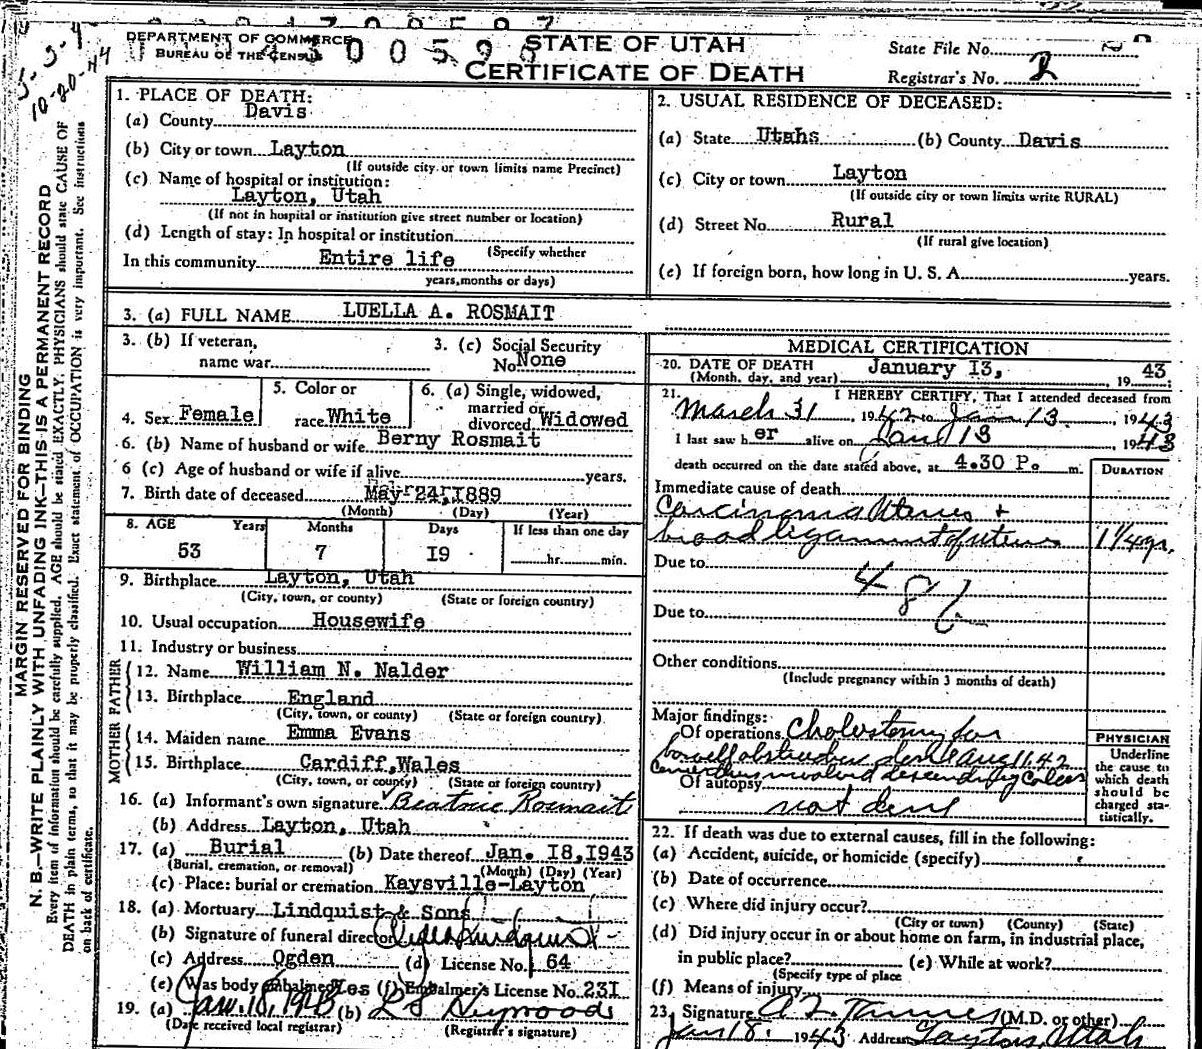 DEPARTMENT OF COMMERCE
BUREAU OF THE CENSUS
STATE OF UTAH
CERTIFICATE OF DEATH
State File No.
Registrar's No. 2
10-20-44
MARGIN RESERVED FOR BINDING
N. B.—WRITE PLAINLY WITH UNFADING INK—THIS IS A PERMANENT RECORD
Every item of information should be carefully supplied. AGE should be stated EXACTLY. PHYSICIANS should state CAUSE OF
DEATH in plain terms, so that it may be properly classified. Exact statement of OCCUPATION is very important. See instructions
on back of certificate.
1. PLACE OF DEATH:
(a) County Davis
(b) City or town Layton
(If outside city or town limits name Precinct)
(c) Name of hospital or institution:
Layton, Utah
(If not in hospital or institution give street number or location)
(d) Length of stay: In hospital or institution
(Specify whether
In this community Entire life
years, months or days)
2. USUAL RESIDENCE OF DECEASED:
(a) State Utahs (b) County Davis
(c) City or town Layton
(If outside city or town limits write RURAL)
(d) Street No. Rural
(If rural give location)
(e) If foreign born, how long in U. S. A. years.
3. (a) FULL NAME LUELLA A. ROSMAIT
3. (b) If veteran,
name war
3. (c) Social Security
No. None
4. Sex Female
5. Color or
race White
6. (a) Single, widowed,
married or
divorced Widowed
6. (b) Name of husband or wife Berny Rosmait
6 (c) Age of husband or wife if alive years.
7. Birth date of deceased May 24, I889
(Month) (Day) (Year)
8. AGE Years Months Days If less than one day
53 7 I9 hr. min.
9. Birthplace Layton, Utah
(City, town, or county) (State or foreign country)
10. Usual occupation Housewife
11. Industry or business
FATHER
12. Name William N. Nalder
13. Birthplace England
(City, town, or county) (State or foreign country)
MOTHER
14. Maiden name Emma Evans
15. Birthplace Cardiff, Wales
(City, town, or county) (State or foreign country)
16. (a) Informant's own signature Beatrice Rosmait
(b) Address Layton, Utah
17. (a) Burial (b) Date thereof Jan. I8, I943
(Burial, cremation, or removal) (Month) (Day) (Year)
(c) Place: burial or cremation Kaysville-Layton
18. (a) Mortuary Lindquist & Sons
(b) Signature of funeral director
(c) Address Ogden (d) License No. 64
(e) Was body embalmed Yes (f) Embalmer's License No. 23I
19. (a) Jan. 18, 1943 (b)
(Date received local registrar) (Registrar's signature)
MEDICAL CERTIFICATION
20. DATE OF DEATH January I3, 19 43
(Month, day, and year)
21. I HEREBY CERTIFY, That I attended deceased from
March 31 1942 to Jan 13. 1943
I last saw her alive on Jan 13 1943
death occurred on the date stated above, at 4.30 P. m.
DURATION
Immediate cause of death
Carcinoma Uterus +
broad ligament of uterus 1 1/4 yr.
Due to
48
Due to
Other conditions
(Include pregnancy within 3 months of death)
Major findings:
Of operations for
bowel obstruction done Aug 11 42
involved descending colon
Of autopsy
not done
PHYSICIAN
Underline
the cause to
which death
should be
charged sta-
tistically.
22. If death was due to external causes, fill in the following:
(a) Accident, suicide, or homicide (specify)
(b) Date of occurrence
(c) Where did injury occur?
(City or town) (County) (State)
(d) Did injury occur in or about home on farm, in industrial place,
in public place? (e) While at work?
(Specify type of place
(f) Means of injury
23. Signature (M.D. or other)
Jan 18. 1943 Address Layton, Utah